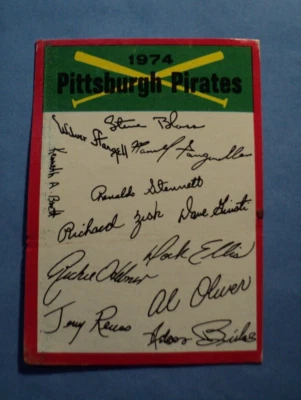 1974
Pittsburgh Pirates
Steve Blass
Wilver Stargell
Kenneth A. Brett
Rennie Stennett
Richard Zisk Dave Giusti
Dock Ellis
Richie Hebner
Al Oliver
Jerry Reuss